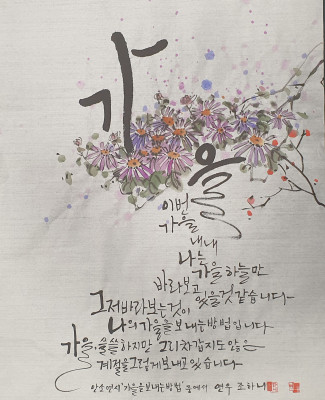 가
을
이번
가을
내내
나는
가을 하늘만
바라보고 있을것 같습니다
그저바라보는것이
나의 가을을 보내는방법입니다
가을, 쓸쓸하지만 그리 차갑지도 않은
계절을 그렇게 보내고 있습니다
'가을을 보내는 방법' 중에서 연우 조하니